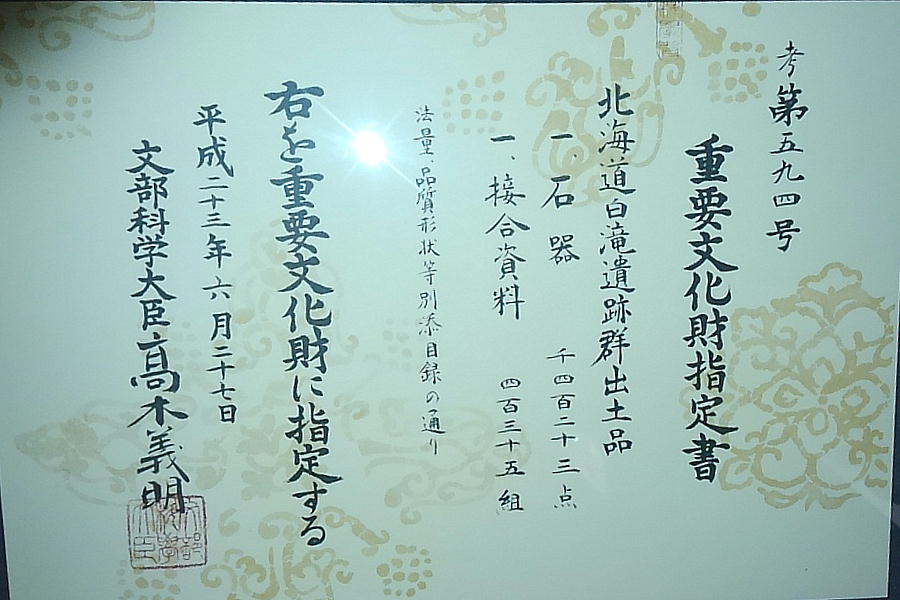 考第五九四号
重要文化財指定書
北海道白滝遺跡群出土品
一、石器 千四百二十三点
一、接合資料 四百三十五組
法量、品質形状等別添目録の通り
右を重要文化財に指定する
平成二十三年六月二十七日
文部科学大臣髙木義明